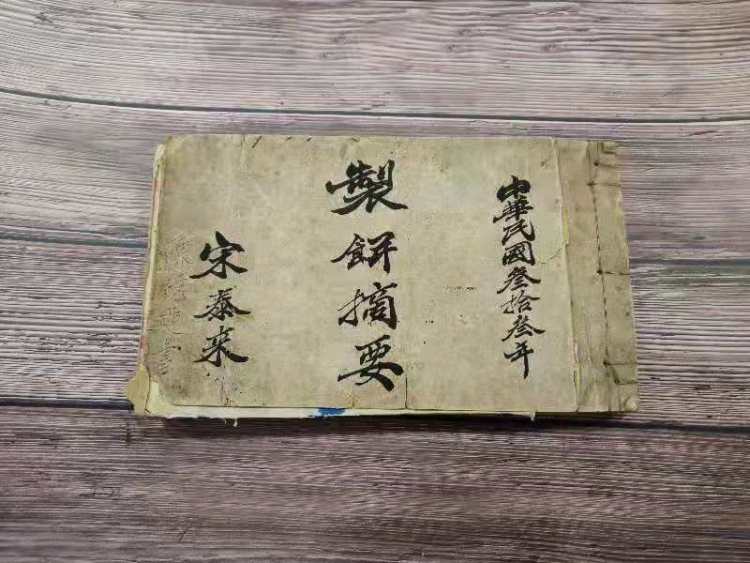 中華民國叁拾叁年
製餅摘要
宋泰来